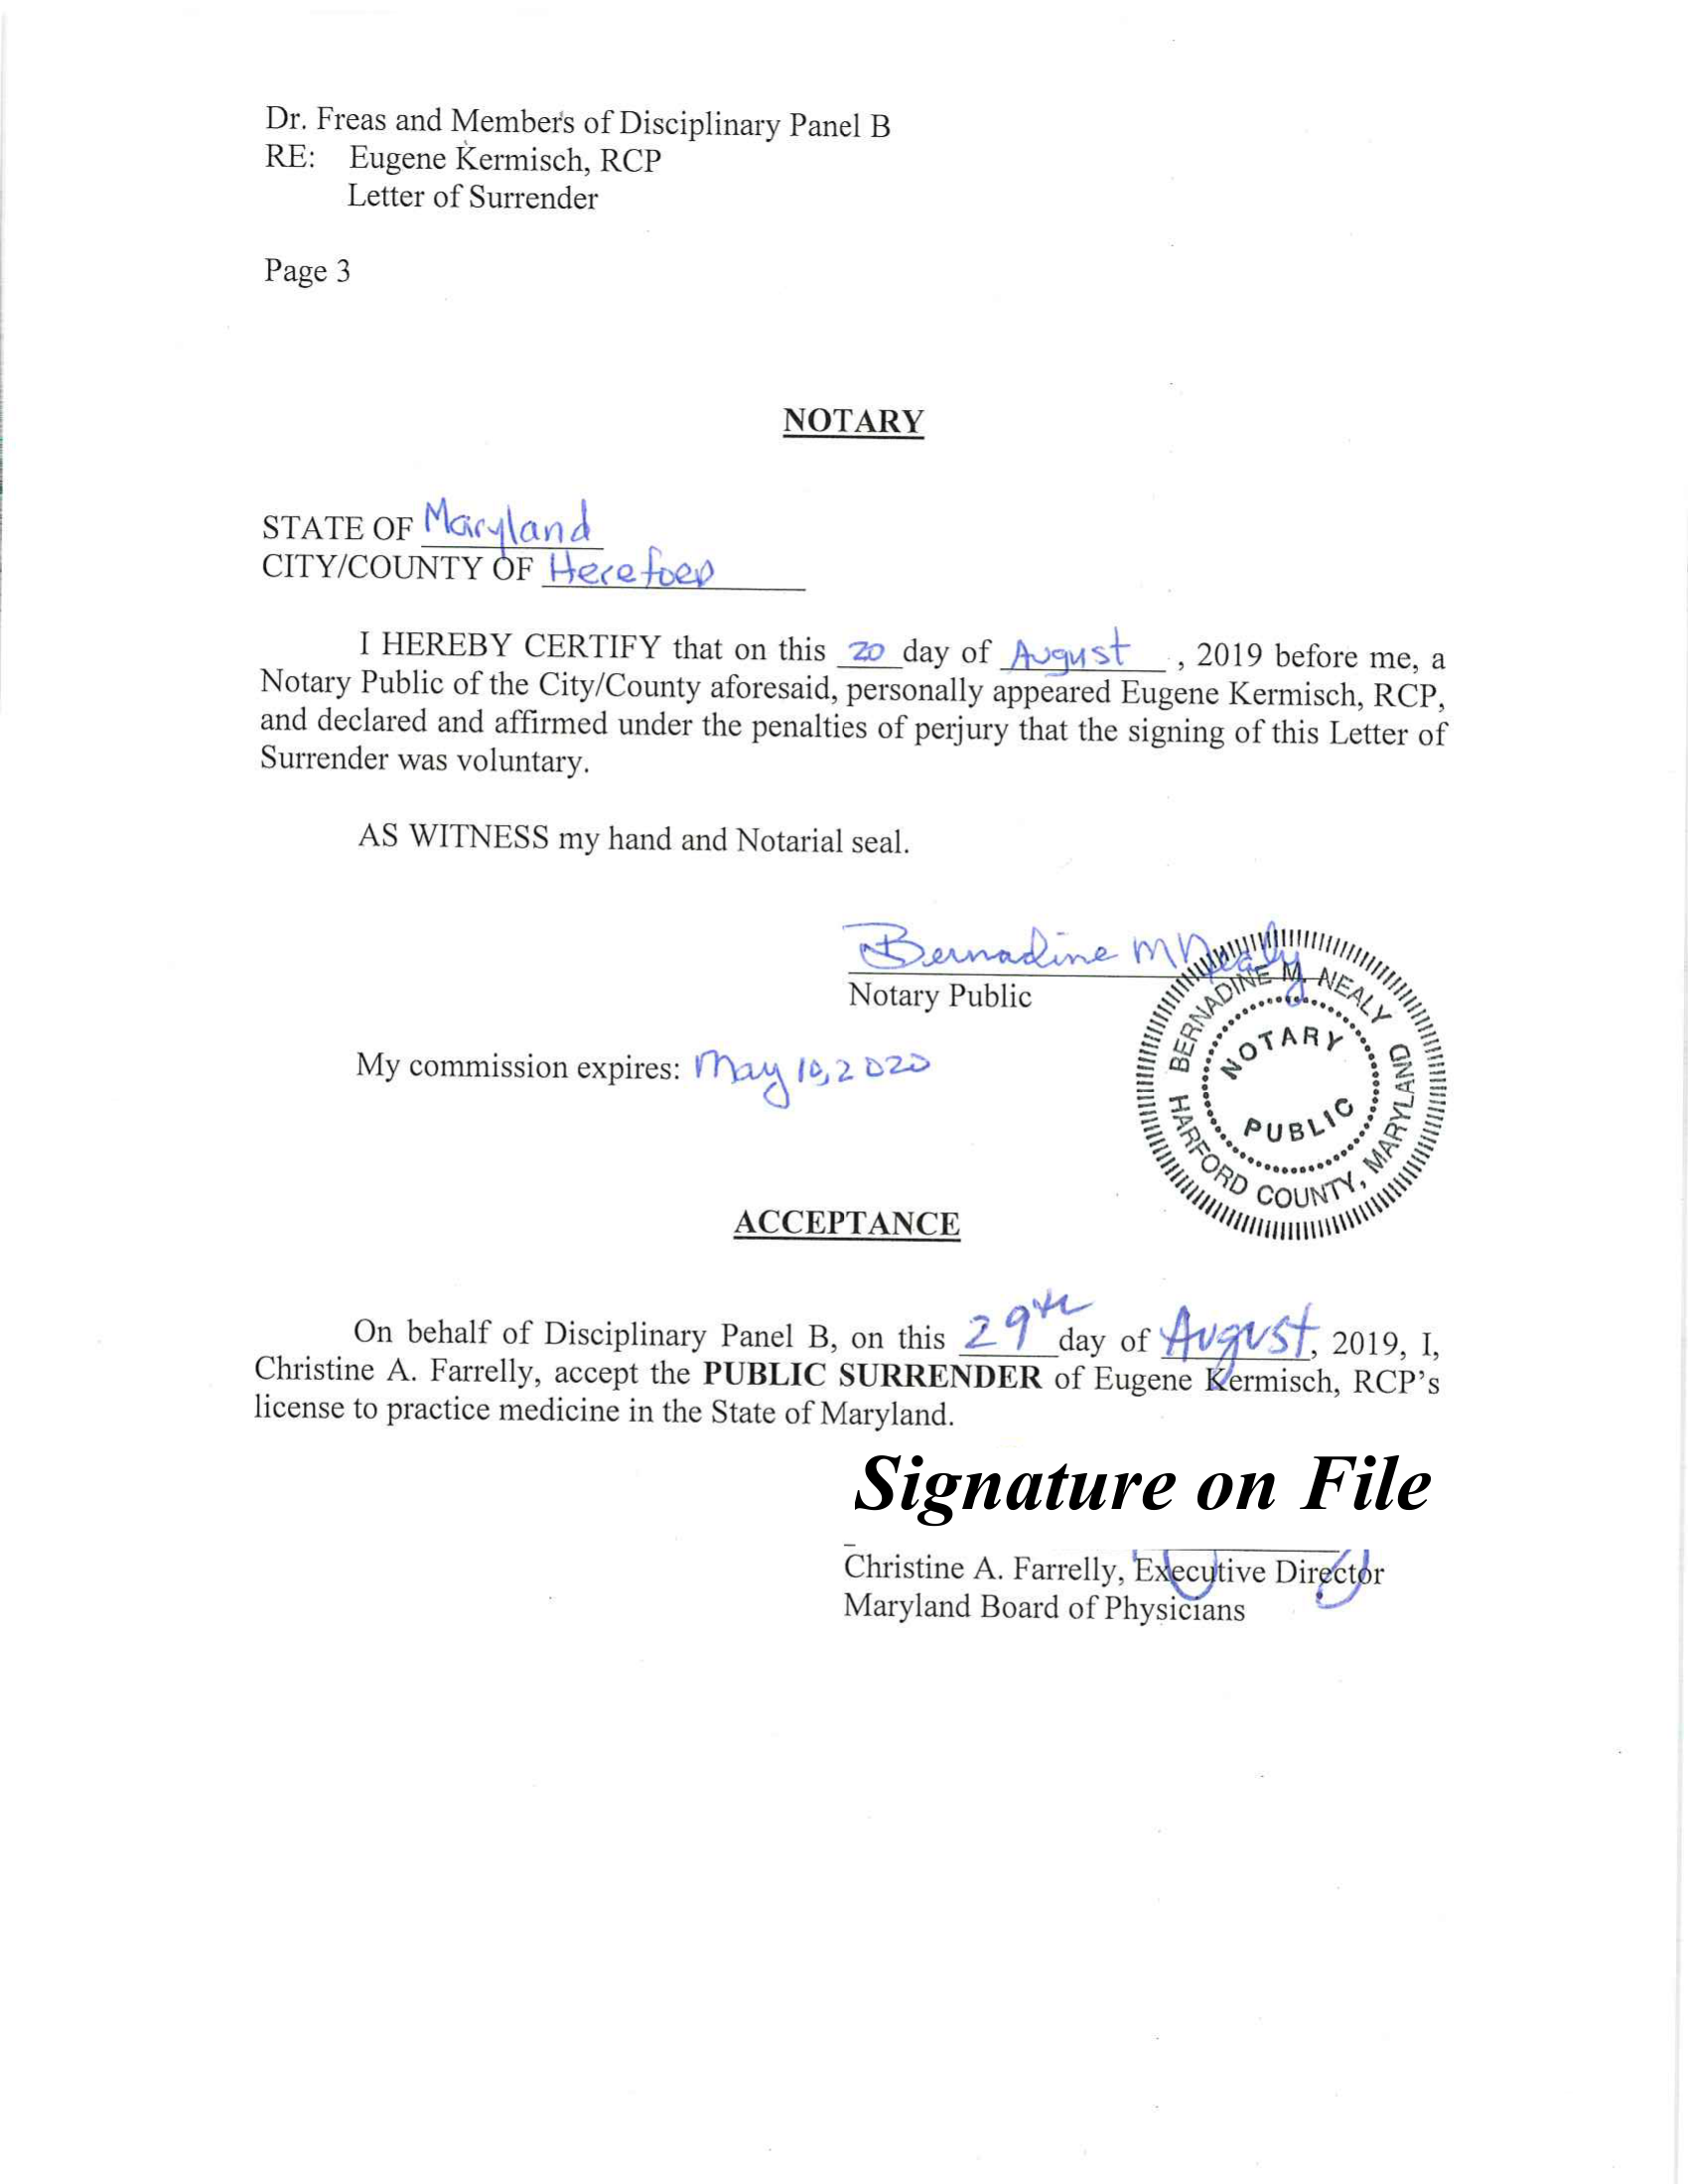 Dr. Freas and Members of Disciplinary Panel B
RE: Eugene Kermisch, RCP
Letter of Surrender
Page 3
NOTARY
STATE OF Maryland
CITY/COUNTY OF Hereford
I HEREBY CERTIFY that on this 20 day of August, 2019 before me, a
Notary Public of the City/County aforesaid, personally appeared Eugene Kermisch, RCP,
and declared and affirmed under the penalties of perjury that the signing of this Letter of
Surrender was voluntary.
AS WITNESS my hand and Notarial seal.
Bernadine M Nealy
Notary Public
BERNADINE M. NEALY
NOTARY
PUBLIC
HARFORD COUNTY, MARYLAND
My commission expires: May 10, 2020
ACCEPTANCE
On behalf of Disciplinary Panel B, on this 29th day of August, 2019, I,
Christine A. Farrelly, accept the PUBLIC SURRENDER of Eugene Kermisch, RCP's
license to practice medicine in the State of Maryland.
Signature on File
Christine A. Farrelly, Executive Director
Maryland Board of Physicians